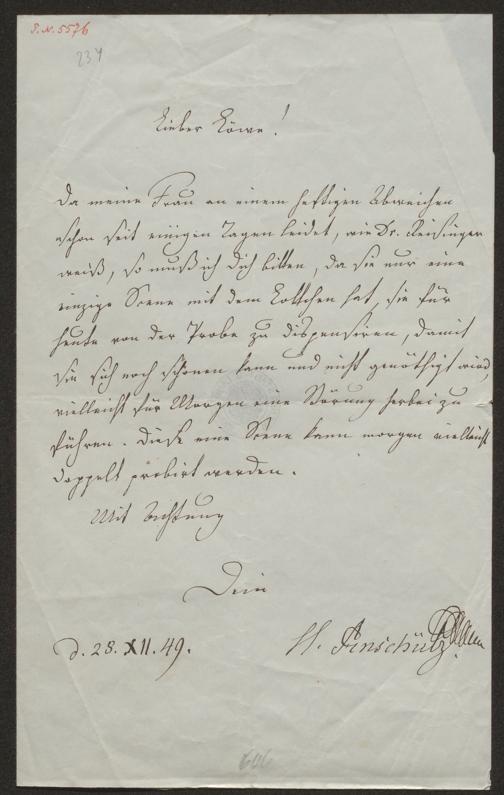 I.N. 5576
234
Lieber Löwe!
Da meine Frau an einem heftigen Abweichen
schon seit einigen Tagen leidet, wie Dr. Reisinger
weiß, so muß ich Dich bitten, da sie nur eine
einzige Scene mit dem Lottchen hat, sie für
heute von der Probe zu dispensiren, damit
sie sich noch schonen kann und nicht genöthigt wird,
vielleicht für Morgen eine Störung herbei zu
führen. Diese eine Scene kann morgen vielleicht
doppelt probirt werden.
Mit Achtung
Dein
d. 28. XII. 49.
H. Anschütz